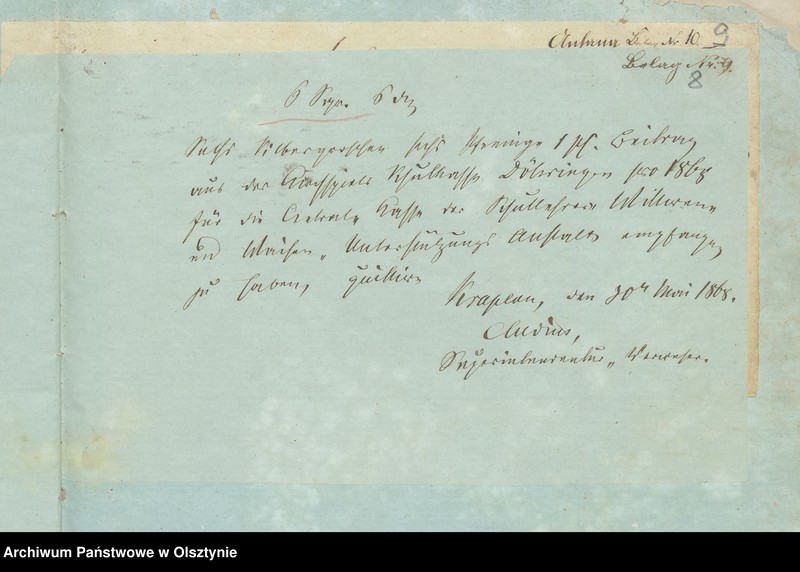 Belag Nr. 10. 9
Belag Nr. 9.
8
6 Sgr. 6 d
Sechs Silbergroschen sechs Pfennige Beitrag
aus der Kirchspiels Schulkasse Döhringen pro 1868
für die Central Kasse der Schullehrer Wittwen-
und Waisen-Unterstützungs Anstalt empfangen
zu haben, quittire
Kraplau, den 30t Mai 1868.
Superintendentur-Verweser.
Archiwum Państwowe w Olsztynie